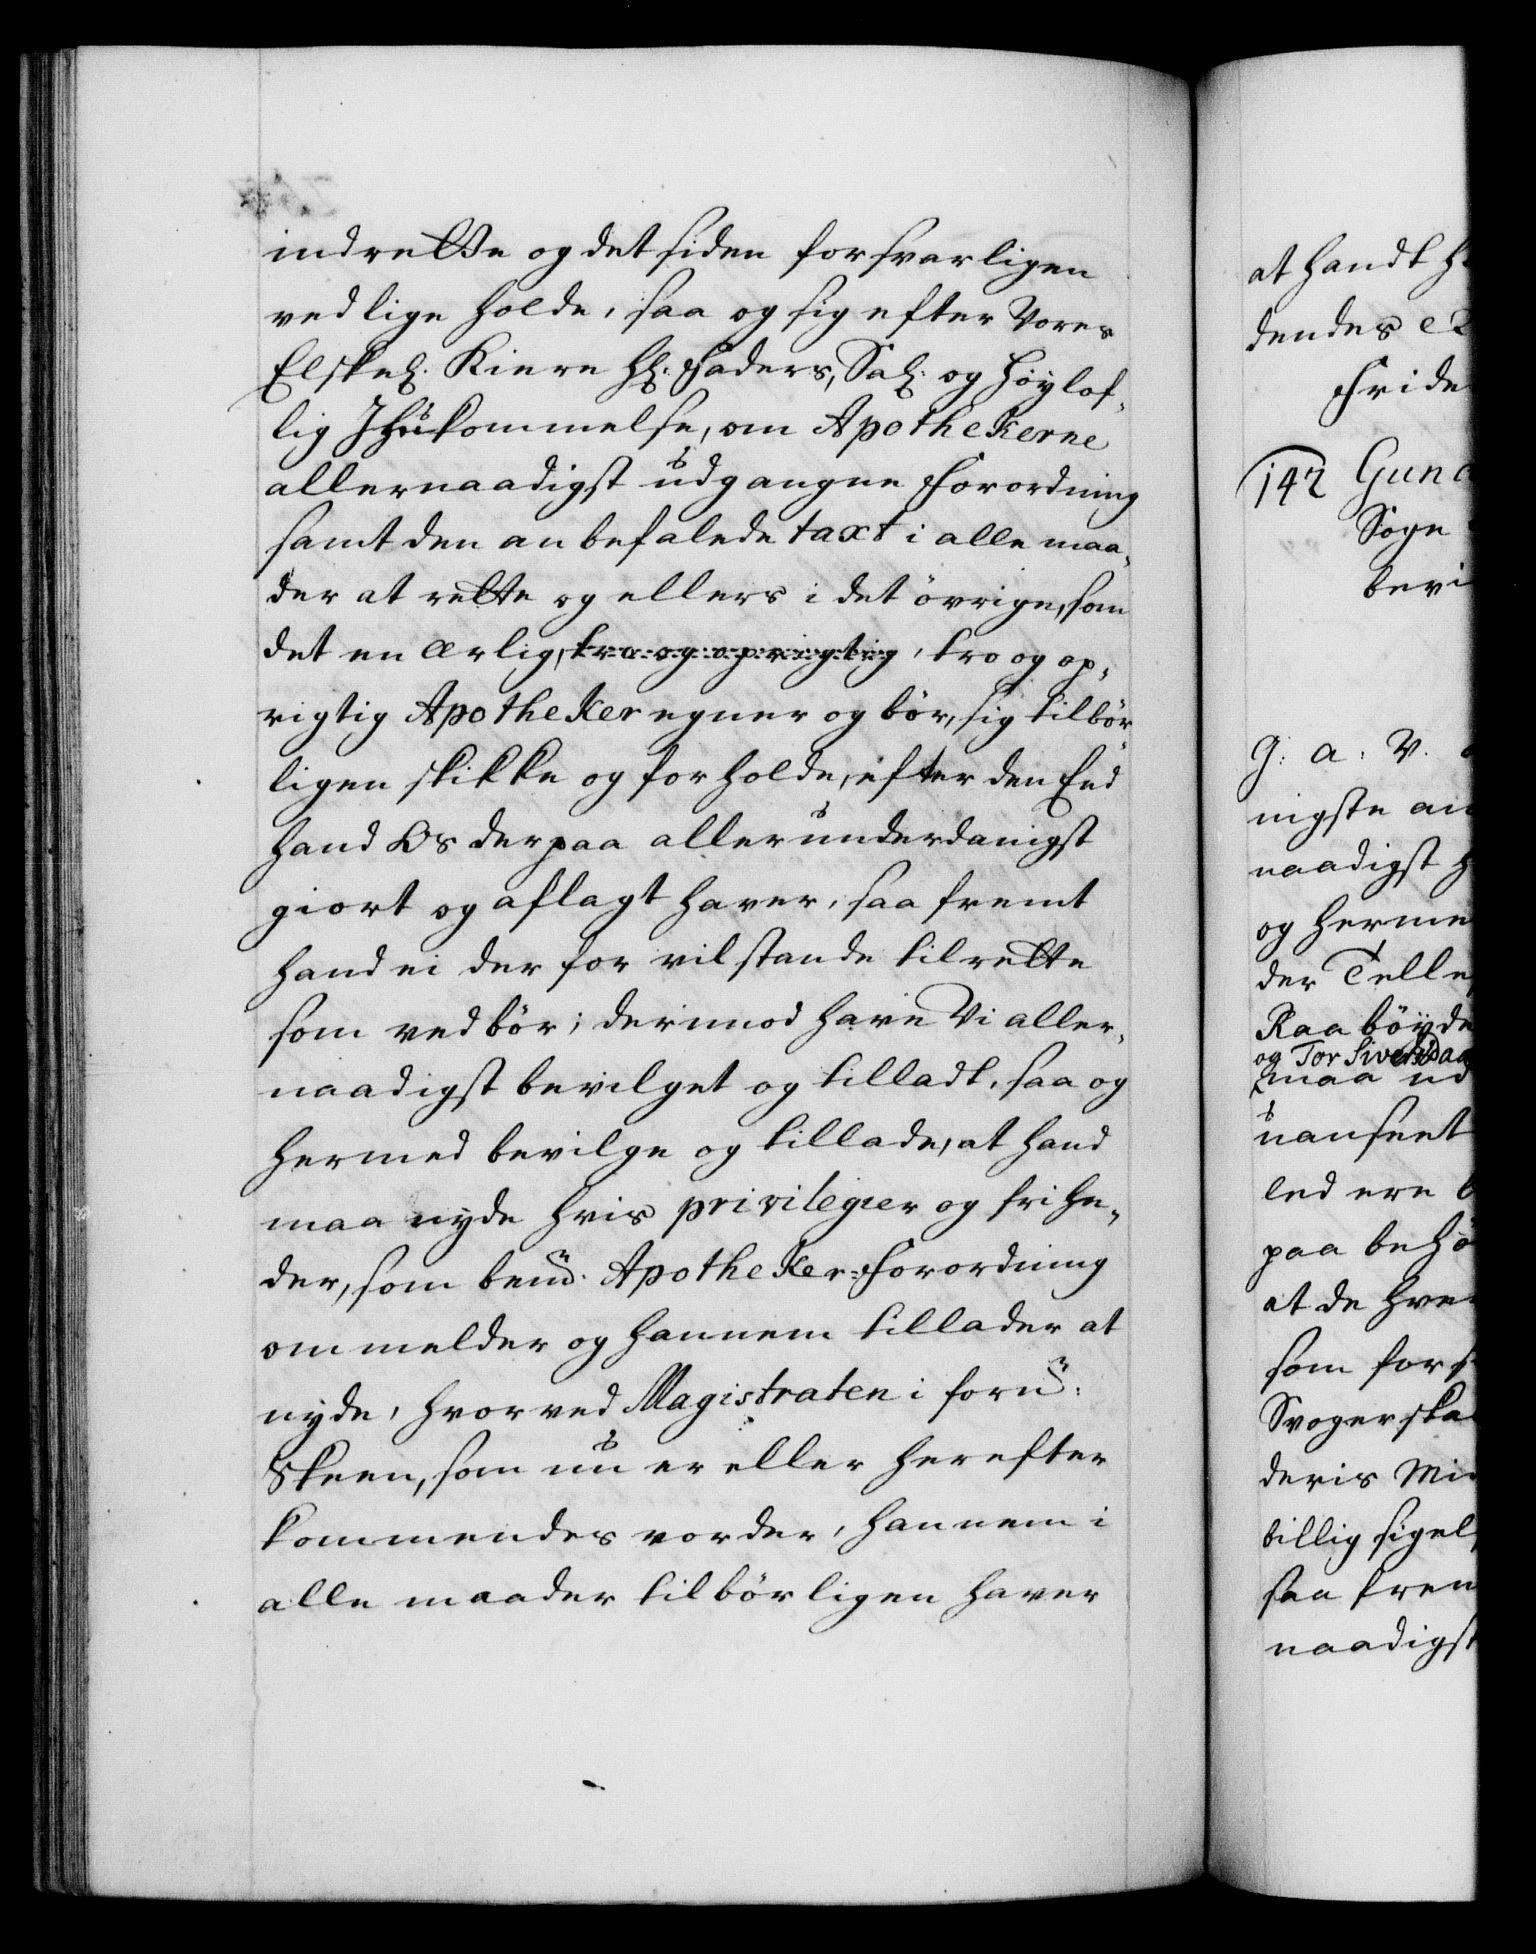 indrette og det siden forsvarligen
ved lige holde, saa og sig efter Vores
Elskel. Kiere Hl. Faders, Sal. og Höylof,,
lig Ihukommelse, om Apothekerne
allernaadigst udgangne Forordning
samt den anbefalede taxt i alle maa,,
der at rette og ellers i det övrige, som
det en ærlig, tro og oprigtig, tro og op,,
rigtig Apotheker egner og bör, sig tilbör,,
ligen skikke og forholde, efter den Eed
hand Os derpaa allerunderdanigst
giort og aflagt haver, saa fremt
hand ei der for vil stande til rette
som vedbör; derimod have Vi aller,,
naadigst bevilget og tilladt, saa og
hermed bevilge og tillade, at hand
maa nyde hvis privilegier og frihe,,
der, som bemt. Apotheker-Forordning
ommelder og hannem tillader at
nyde, hvorved Magistraten i forn:
Skeen, som nu er eller herefter
kommendes vorder, hannem i
alle maader tilbörligen haver
at handt
dendes
Fride
142 Gun
Sogn
bevi
G: A: V.
nigste an
naadigst
og herme
der Telle
Raa böyde
og Tor Sivers
maa ud
uanseet
led ere
paa behö
at de hver
som fors
Svogerska
deris Mi
billig sigel
saa frem
naadigst